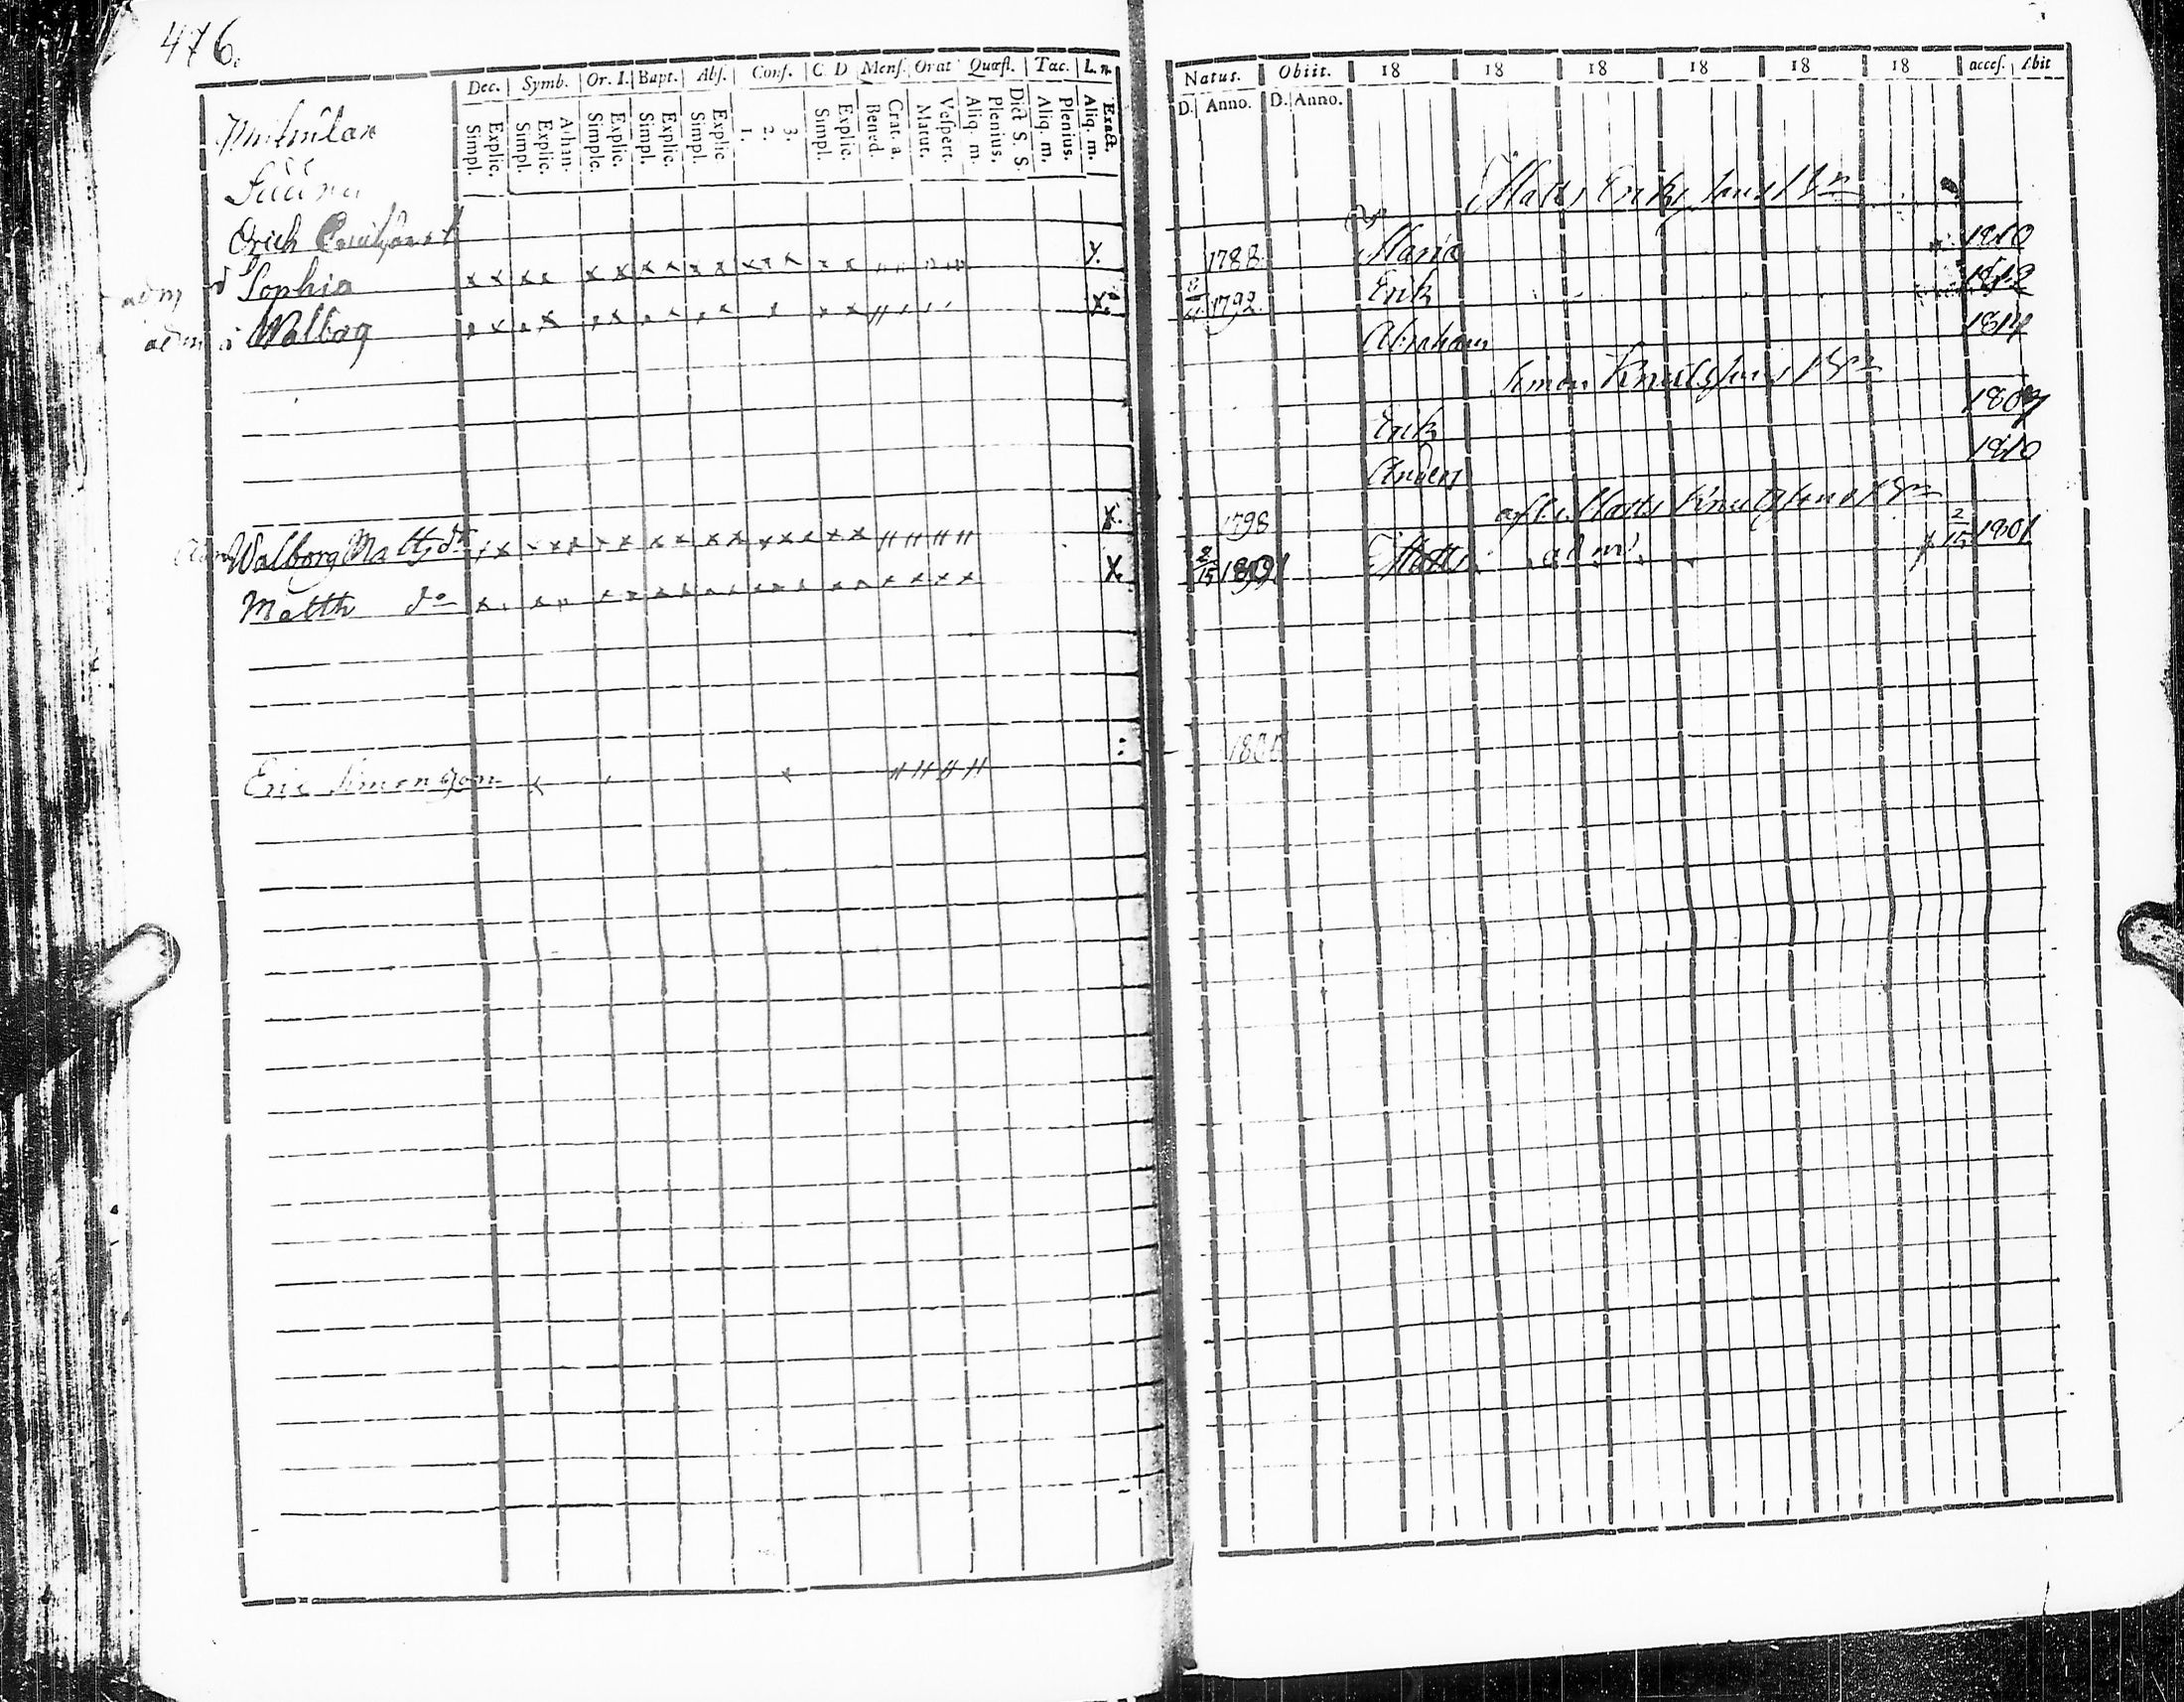 476.
Dec. Symb. Or. I. Bapt. Abs. Conf. C D Mens. Orat Quæst. Tac. L. n.
Simpl. Explic. Simpl. Explic. Athan. Simple. Explic. Simpl. Explic. Simpl. Explic 1. 2. 3. Simpl. Explic. Bened. Grat. a. Matut. Vespert. Aliq. m. Plenius. Dict S. S. Aliq. m. Plenius. Aliq. m. Exact.
Erich
adm d Sophia
adm d Walbog
Walborg Matts dr
Matth do
Eric Simonson
Natus. Obiit. 18 18 18 18 18 18 acces. Abit
D. Anno. D. Anno.
Matts Eriks sons Bn
1788. Maria 1810
1792. Erik 1812
Abraham 1814
Simon Knutssons Bn
Erik 1807
Anders 1810
1798 afl. Matts Knutssons Bn
2/15 1801 Matts adm. f 2/15 1801